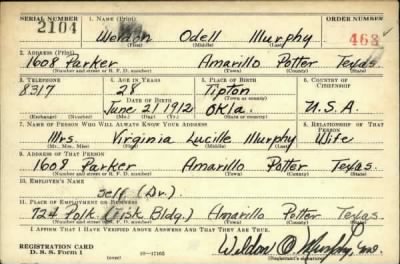 SERIAL NUMBER 1. NAME (Print) ORDER NUMBER
2104 Weldon Odell Murphy 463
(First) (Middle) (Last)
2. ADDRESS (Print)
1608 Parker Amarillo Potter Texas
(Number and street or R. F. D. number) (Town) (County) (State)
3. TELEPHONE 4. AGE IN YEARS 5. PLACE OF BIRTH 6. COUNTRY OF CITIZENSHIP
8317 28 Tipton
DATE OF BIRTH (Town or county)
June 21 1912 Okla. U.S.A.
(Exchange) (Number) (Mo.) (Day) (Yr.) (State or country)
7. NAME OF PERSON WHO WILL ALWAYS KNOW YOUR ADDRESS 8. RELATIONSHIP OF THAT PERSON
Mrs. Virginia Lucille Murphy Wife
(Mr., Mrs., Miss) (First) (Middle) (Last)
9. ADDRESS OF THAT PERSON
1608 Parker Amarillo Potter Texas
(Number and street or R. F. D. number) (Town) (County) (State)
10. EMPLOYER'S NAME
Self (Dr.)
11. PLACE OF EMPLOYMENT OR BUSINESS
724 Polk (Fisk Bldg.) Amarillo Potter Texas
(Number and street or R. F. D. number) (Town) (County) (State)
I AFFIRM THAT I HAVE VERIFIED ABOVE ANSWERS AND THAT THEY ARE TRUE.
REGISTRATION CARD Weldon O. Murphy, M.D.
D. S. S. FORM 1 (over) 16—17105 (Registrant's signature)